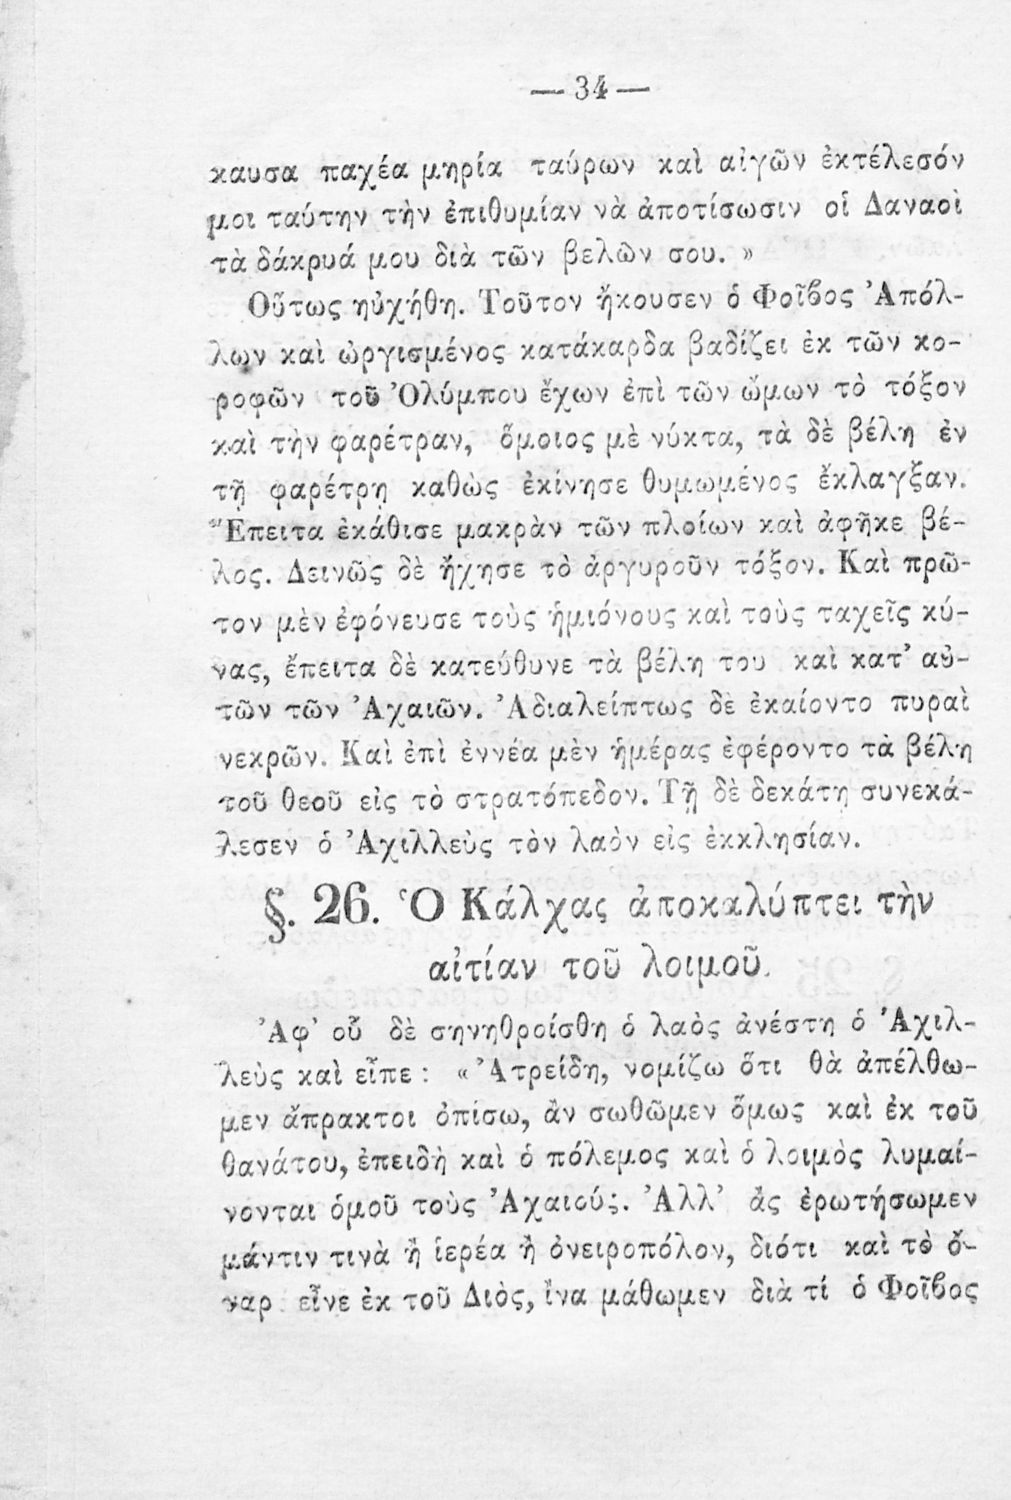 — 34 —
καυσα παχέα μηρία ταύρων καὶ αἰγῶν ἐκτέλεσόν
μοι ταύτην τὴν ἐπιθυμίαν νὰ ἀποτίσωσιν οἱ Δαναοὶ
τὰ δάκρυά μου διὰ τῶν βελῶν σου. »
Οὕτως ηὐχήθη. Τοῦτον ἤκουσεν ὁ Φοῖβος Ἀπόλ-
λων καὶ ὠργισμένος κατάκαρδα βαδίζει ἐκ τῶν κο-
ροφῶν τοῦ Ὀλύμπου ἔχων ἐπὶ τῶν ὤμων τὸ τόξον
καὶ τὴν φαρέτραν, ὅμοιος μὲ νύκτα, τὰ δὲ βέλη ἐν
τῇ φαρέτρῃ καθὼς ἐκίνησε θυμωμένος ἔκλαγξαν.
Ἔπειτα ἐκάθισε μακρὰν τῶν πλοίων καὶ ἀφῆκε βέ-
λος. Δεινῶς δὲ ἤχησε τὸ ἀργυροῦν τόξον. Καὶ πρῶ-
τον μὲν ἐφόνευσε τοὺς ἡμιόνους καὶ τοὺς ταχεῖς κύ-
νας, ἔπειτα δὲ κατεύθυνε τὰ βέλη του καὶ κατ’ αὐ-
τῶν τῶν Ἀχαιῶν. Ἀδιαλείπτως δὲ ἐκαίοντο πυραὶ
νεκρῶν. Καὶ ἐπὶ ἐννέα μὲν ἡμέρας ἐφέροντο τὰ βέλη
τοῦ θεοῦ εἰς τὸ στρατόπεδον. Τῇ δὲ δεκάτῃ συνεκά-
λεσεν ὁ Ἀχιλλεὺς τὸν λαὸν εἰς ἐκκλησίαν.
§. 26. Ὁ Κάλχας ἀποκαλύπτει τὴν
αἰτίαν τοῦ λοιμοῦ.
Ἀφ’ οὗ δὲ σηνηθροίσθη ὁ λαὸς ἀνέστη ὁ Ἀχιλ-
λεὺς καὶ εἶπε : « Ἀτρείδη, νομίζω ὅτι θὰ ἀπέλθω-
μεν ἄπρακτοι ὀπίσω, ἂν σωθῶμεν ὅμως καὶ ἐκ τοῦ
θανάτου, ἐπειδὴ καὶ ὁ πόλεμος καὶ ὁ λοιμὸς λυμαί-
νονται ὁμοῦ τοὺς Ἀχαιούς. Ἀλλ’ ἂς ἐρωτήσωμεν
μάντιν τινὰ ἢ ἱερέα ἢ ὀνειροπόλον, διότι καὶ τὸ ὄ-
ναρ εἶνε ἐκ τοῦ Διὸς, ἵνα μάθωμεν διὰ τί ὁ Φοῖβος